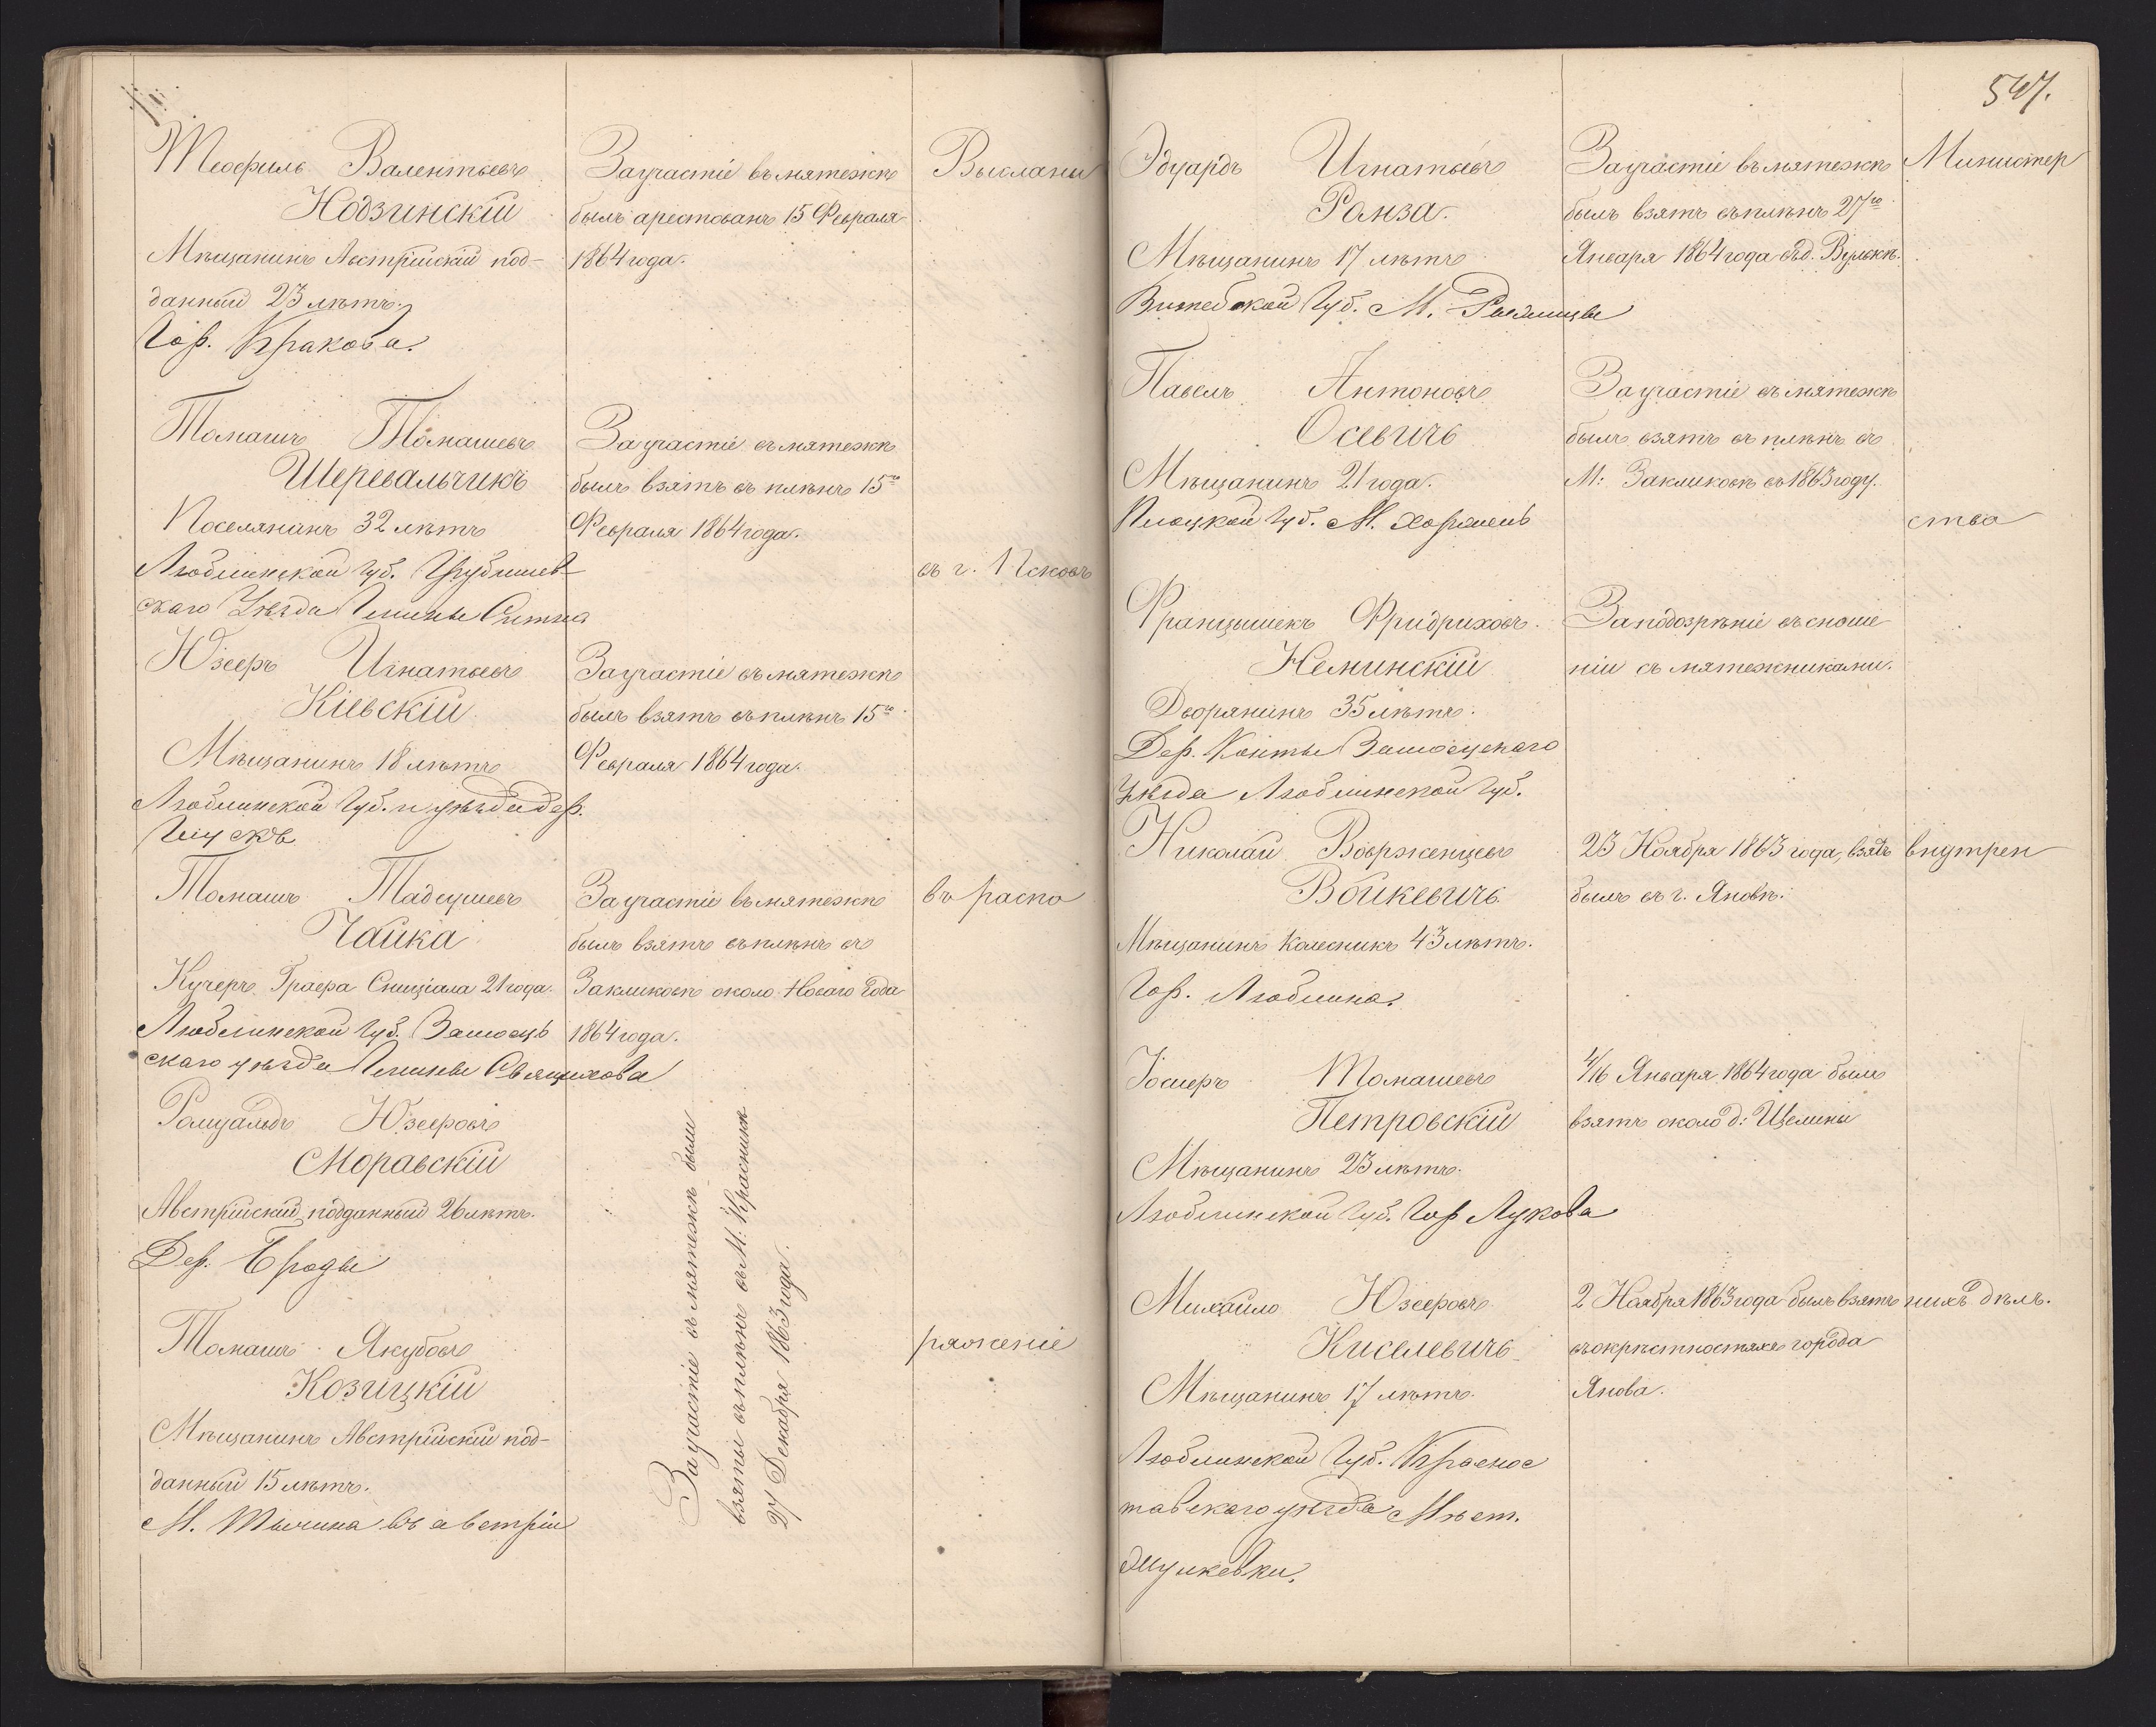 Теофиль Валентьевъ
Нодзинскій
Мѣщанинъ Австрійскій под-
данный 23 лѣтъ.
Гор. Кракова.
За участіе въ мятежѣ
былъ арестованъ 15 Февраля
1864 года.
Высланы
Томашъ Томашевъ
Шеревальчикъ
Поселянинъ 32 лѣтъ
Люблинской Губ. Грубешев-
скаго Уѣзда Гмины
За участіе въ мятежѣ
былъ взятъ въ плѣнъ 15го
Февраля 1864 года.
въ г. Псковъ
Юзефъ Игнатьевъ
Кіевскій
Мѣщанинъ 18 лѣтъ
Люблинской Губ. и уѣзда дер.
За участіе въ мятежѣ
былъ взятъ въ плѣнъ 15го
Февраля 1864 года.
Томашъ Тадеушевъ
Чайка
Кучеръ Графа 21 года.
Люблинской Губ. Замосць
скаго уѣзда Гмины
За участіе въ мятежѣ
былъ взятъ въ плѣнъ въ
Закликовѣ около Новаго Года
1864 года.
въ распо
Ромуальдъ Юзефовъ
Моравскій
Австрійскій подданный 26 лѣтъ.
Дер. Броды
Томашъ Якубовъ
Козицкій
Мѣщанинъ Австрійскій под-
данный 15 лѣтъ.
М. Тычина въ австріи
За участіе въ мятежѣ были
взяты въ плѣнъ въ М: Красникѣ
27 Декабря 1863 года.
ряженіе
547.
Эдуардъ Игнатьевъ
Ромза.
Мѣщанинъ 17 лѣтъ
Витебской Губ. М.
За участіе въ мятежѣ
былъ взятъ въ плѣнъ 27го
Января 1864 года въ д. Вулькѣ.
Министер
Павелъ Антоновъ
Осевичъ
Мѣщанинъ 21 года.
Плоцкой Губ. М. Хоржень
За участіе въ мятежѣ
былъ взятъ въ плѣнъ въ
М: Закликовѣ въ 1863 году.
ства
Францишекъ Фридриховъ.
Неминскій
Дворянинъ 35 лѣтъ.
Дер. Конты Замосцскаго
уѣзда Люблинской Губ.
За подозрѣніе въ сноше
ніи съ мятежниками.
Николай
Войкевичъ
Мѣщанинъ колесникъ 43 лѣтъ.
Гор. Люблина.
23 Ноября 1863 года, взятъ
былъ въ г. Яновѣ.
внутрен
Іосифъ Томашевъ
Петровскій
Мѣщанинъ 23 лѣтъ.
Люблинской Губ. Гор Лукова
4/16 Января 1864 года былъ
взятъ около д: Щелины
Михайло Юзефовъ
Киселевичъ
Мѣщанинъ 17 лѣтъ.
Люблинской Губ. Краснос
тавскаго уѣзда Мѣст.
2 Ноября 1863 года былъ взятъ
въ окрѣстностяхъ города
Янова.
нихъ дѣлъ.